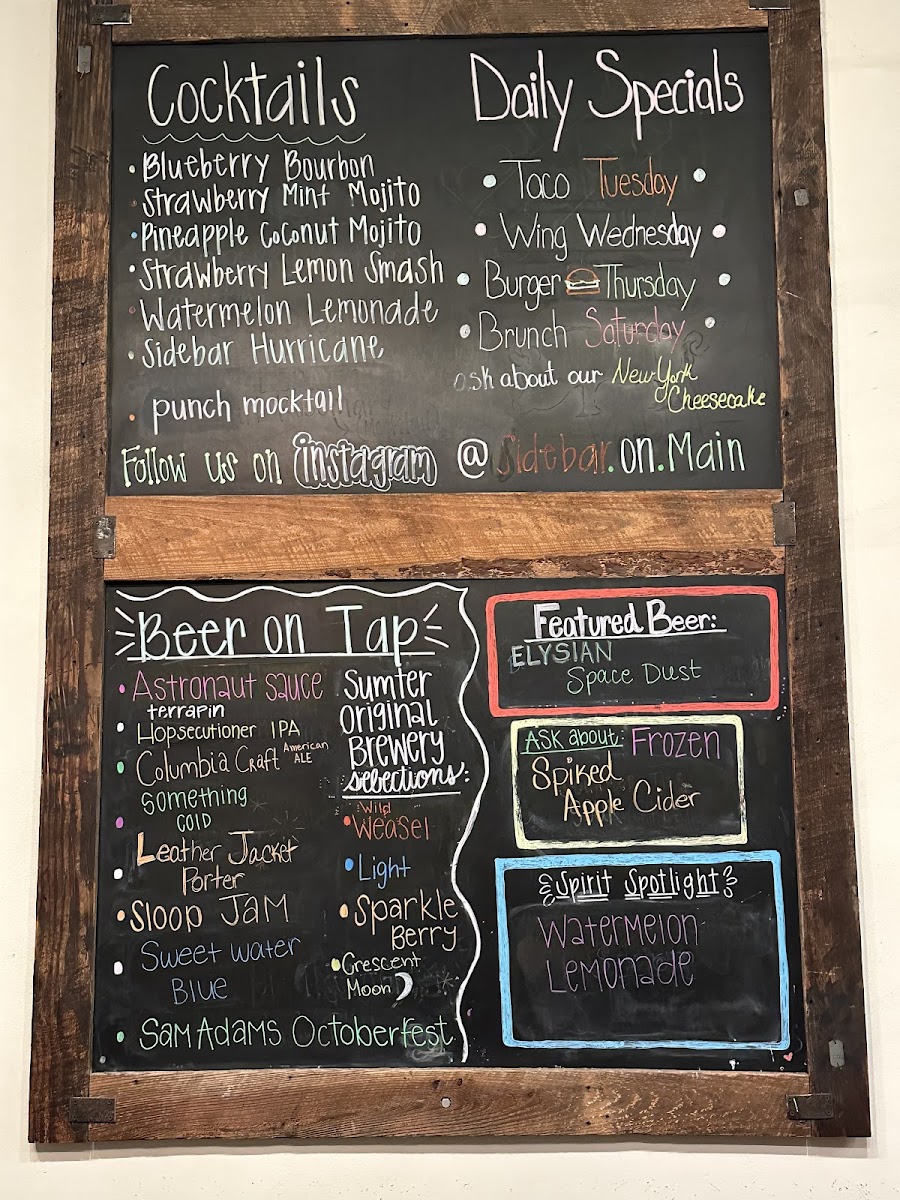 Cocktails
Blueberry Bourbon
Strawberry Mint Mojito
Pineapple Coconut Mojito
Strawberry Lemon Smash
Watermelon Lemonade
Sidebar Hurricane
punch mocktail
Daily Specials
Taco Tuesday
Wing Wednesday
Burger Thursday
Brunch Saturday
ask about our New York
Cheesecake
Follow us on instagram @Sidebar.on.Main
Beer on Tap
Astronaut sauce
terrapin
Hopsecutioner IPA
Columbia Craft American
ALE
Something
COLD
Leather Jacket
Porter
Sloop JAM
Sweet water
Blue
SAM ADAMS Octoberfest
Sumter
Original
Brewery
selections:
Wild
Weasel
Light
Sparkle
Berry
Crescent
Moon
Featured Beer:
ELYSIAN
Space Dust
ASK about: Frozen
Spiked
Apple Cider
Spirit Spotlight
Watermelon
Lemonade